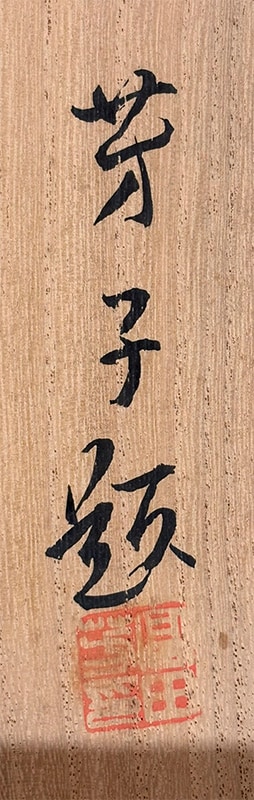 芳子題